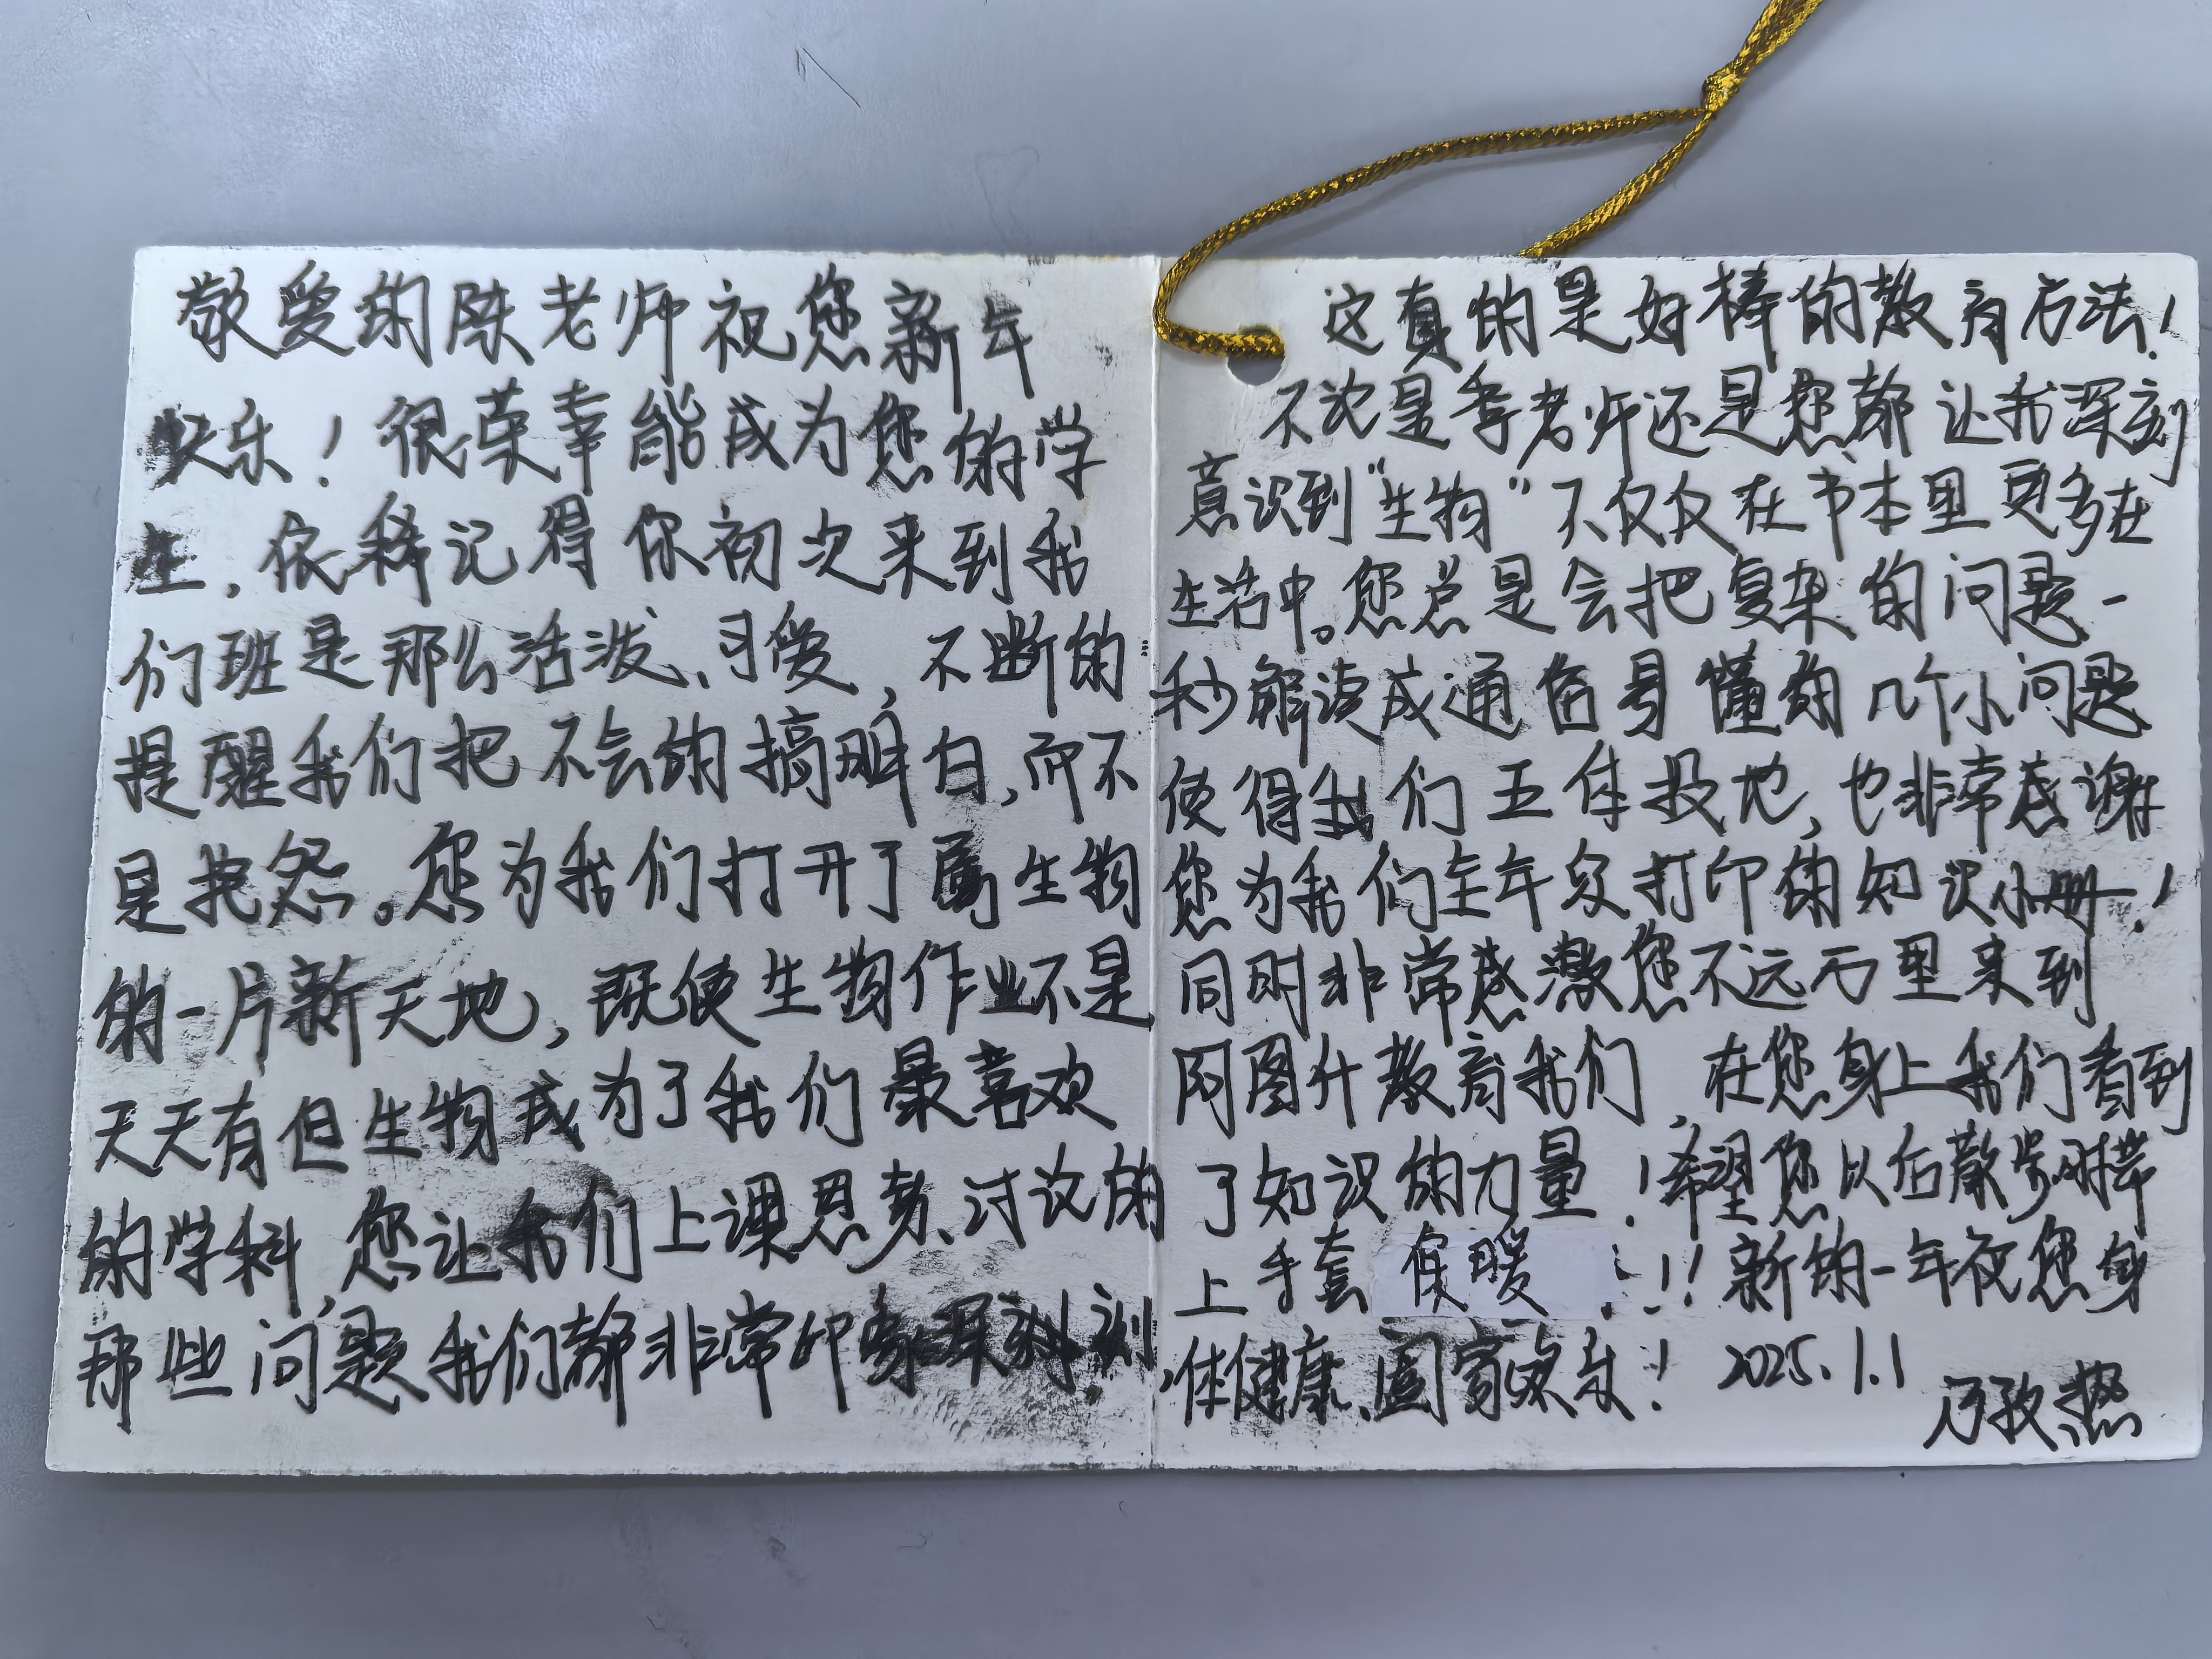 敬爱的陈老师祝您新年
快乐！很荣幸能成为您的学
生，依稀记得你初次来到我
们班是那么活泼、可爱，不断的
提醒我们把不会的搞明白，而不
是抱怨。您为我们打开了属生物
的一片新天地，既使生物作业不是
天天有但生物成为了我们最喜欢
的学科，您让我们上课思考、讨论的
那些问题我们都非常印象深刻
这真的是好棒的教育方法！
不论是李老师还是您都让我深刻
意识到“生物”不仅仅在书本里更多在
生活中。您总是会把复杂的问题一
秒解读成通俗易懂的几个小问题
使得我们五体投地，也非常感谢
您为我们全年级打印的知识小册！
同时非常感激您不远万里来到
阿图什教育我们，在您身上我们看到
了知识的力量！希望您以后散步时带
上手套保暖！！！新的一年祝您身
体健康、阖家欢乐！2025.1.1
乃孜热